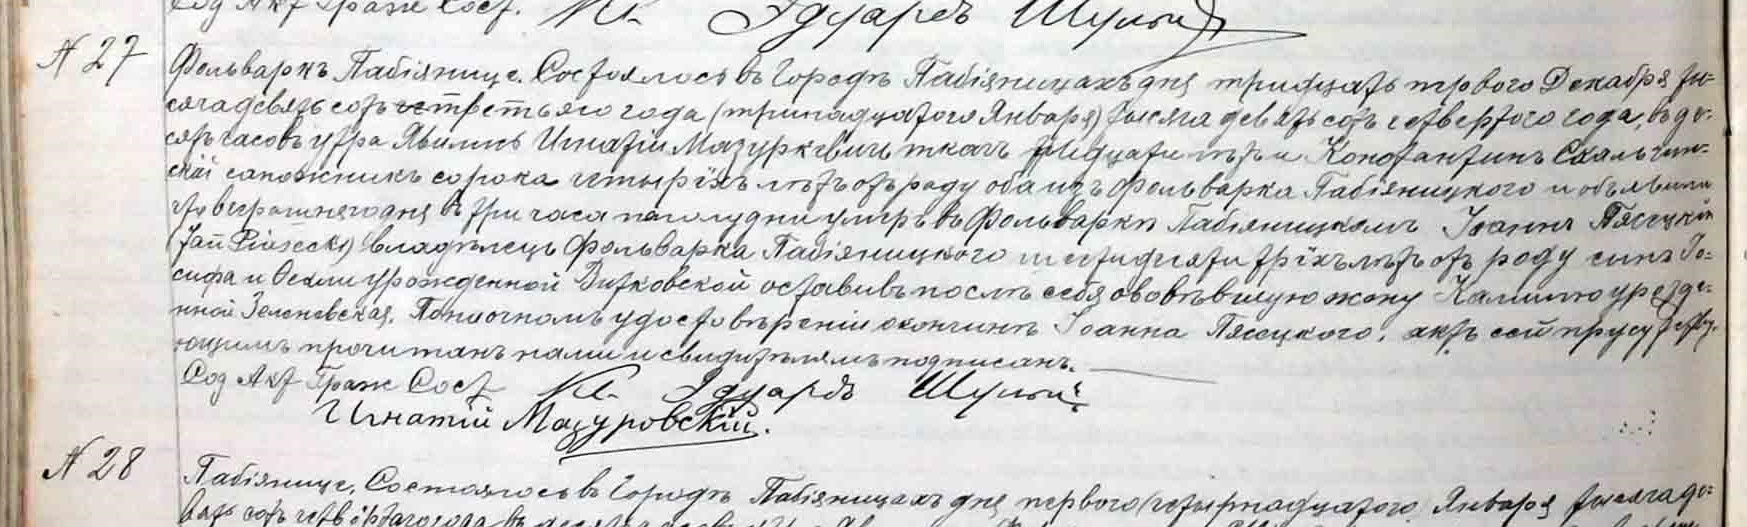 Сод Акт Граж Сост. Кс. Эдуардъ Шульц
N 27
Фольваркъ Пабіянице. Состоялось въ Городѣ Пабіяницахъ дня тридцать перваго Декабря ты=
сяча девятьсотъ третьяго года (тринадцатого Января) тысяча девятьсотъ четвертого года, въ де-
сять часовъ утра. Явились Игнатій Мазуркевичъ ткачъ лѣтъ и Константинъ Скальчин-
скій сапожникъ сорока четырёхъ лѣтъ отъ роду оба изъ Фольварка Пабіяницкого и объявили
что вчерашняго дня въ три часа пополудни умеръ въ Фольваркѣ Пабіяницкомъ Іоаннъ Пясецкій
(Jan Piasecki) владѣлецъ Фольварка Пабіяницкого шестидесяти трёхъ лѣтъ отъ роду сынъ Іо=
сифа и урожденной Витковской оставивъ послѣ себя овдовѣвшую жену Камилю урожде-
нной Зеленевская. По настоящемъ удостовѣреніи о кончинѣ Іоанна Пясецкого. актъ сей присутству-
ющимъ прочитанъ нами и свидѣтелямъ подписанъ.
Сод Акт Граж Сост Кс. Эдуардъ Шульц
Игнатій Мазуровскій.
N 28
Пабіянице, Состоялось въ Городѣ Пабіяницахъ дня первого (четырнадцатого) Января тысяча де=
вятьсотъ четвёртаго года въ